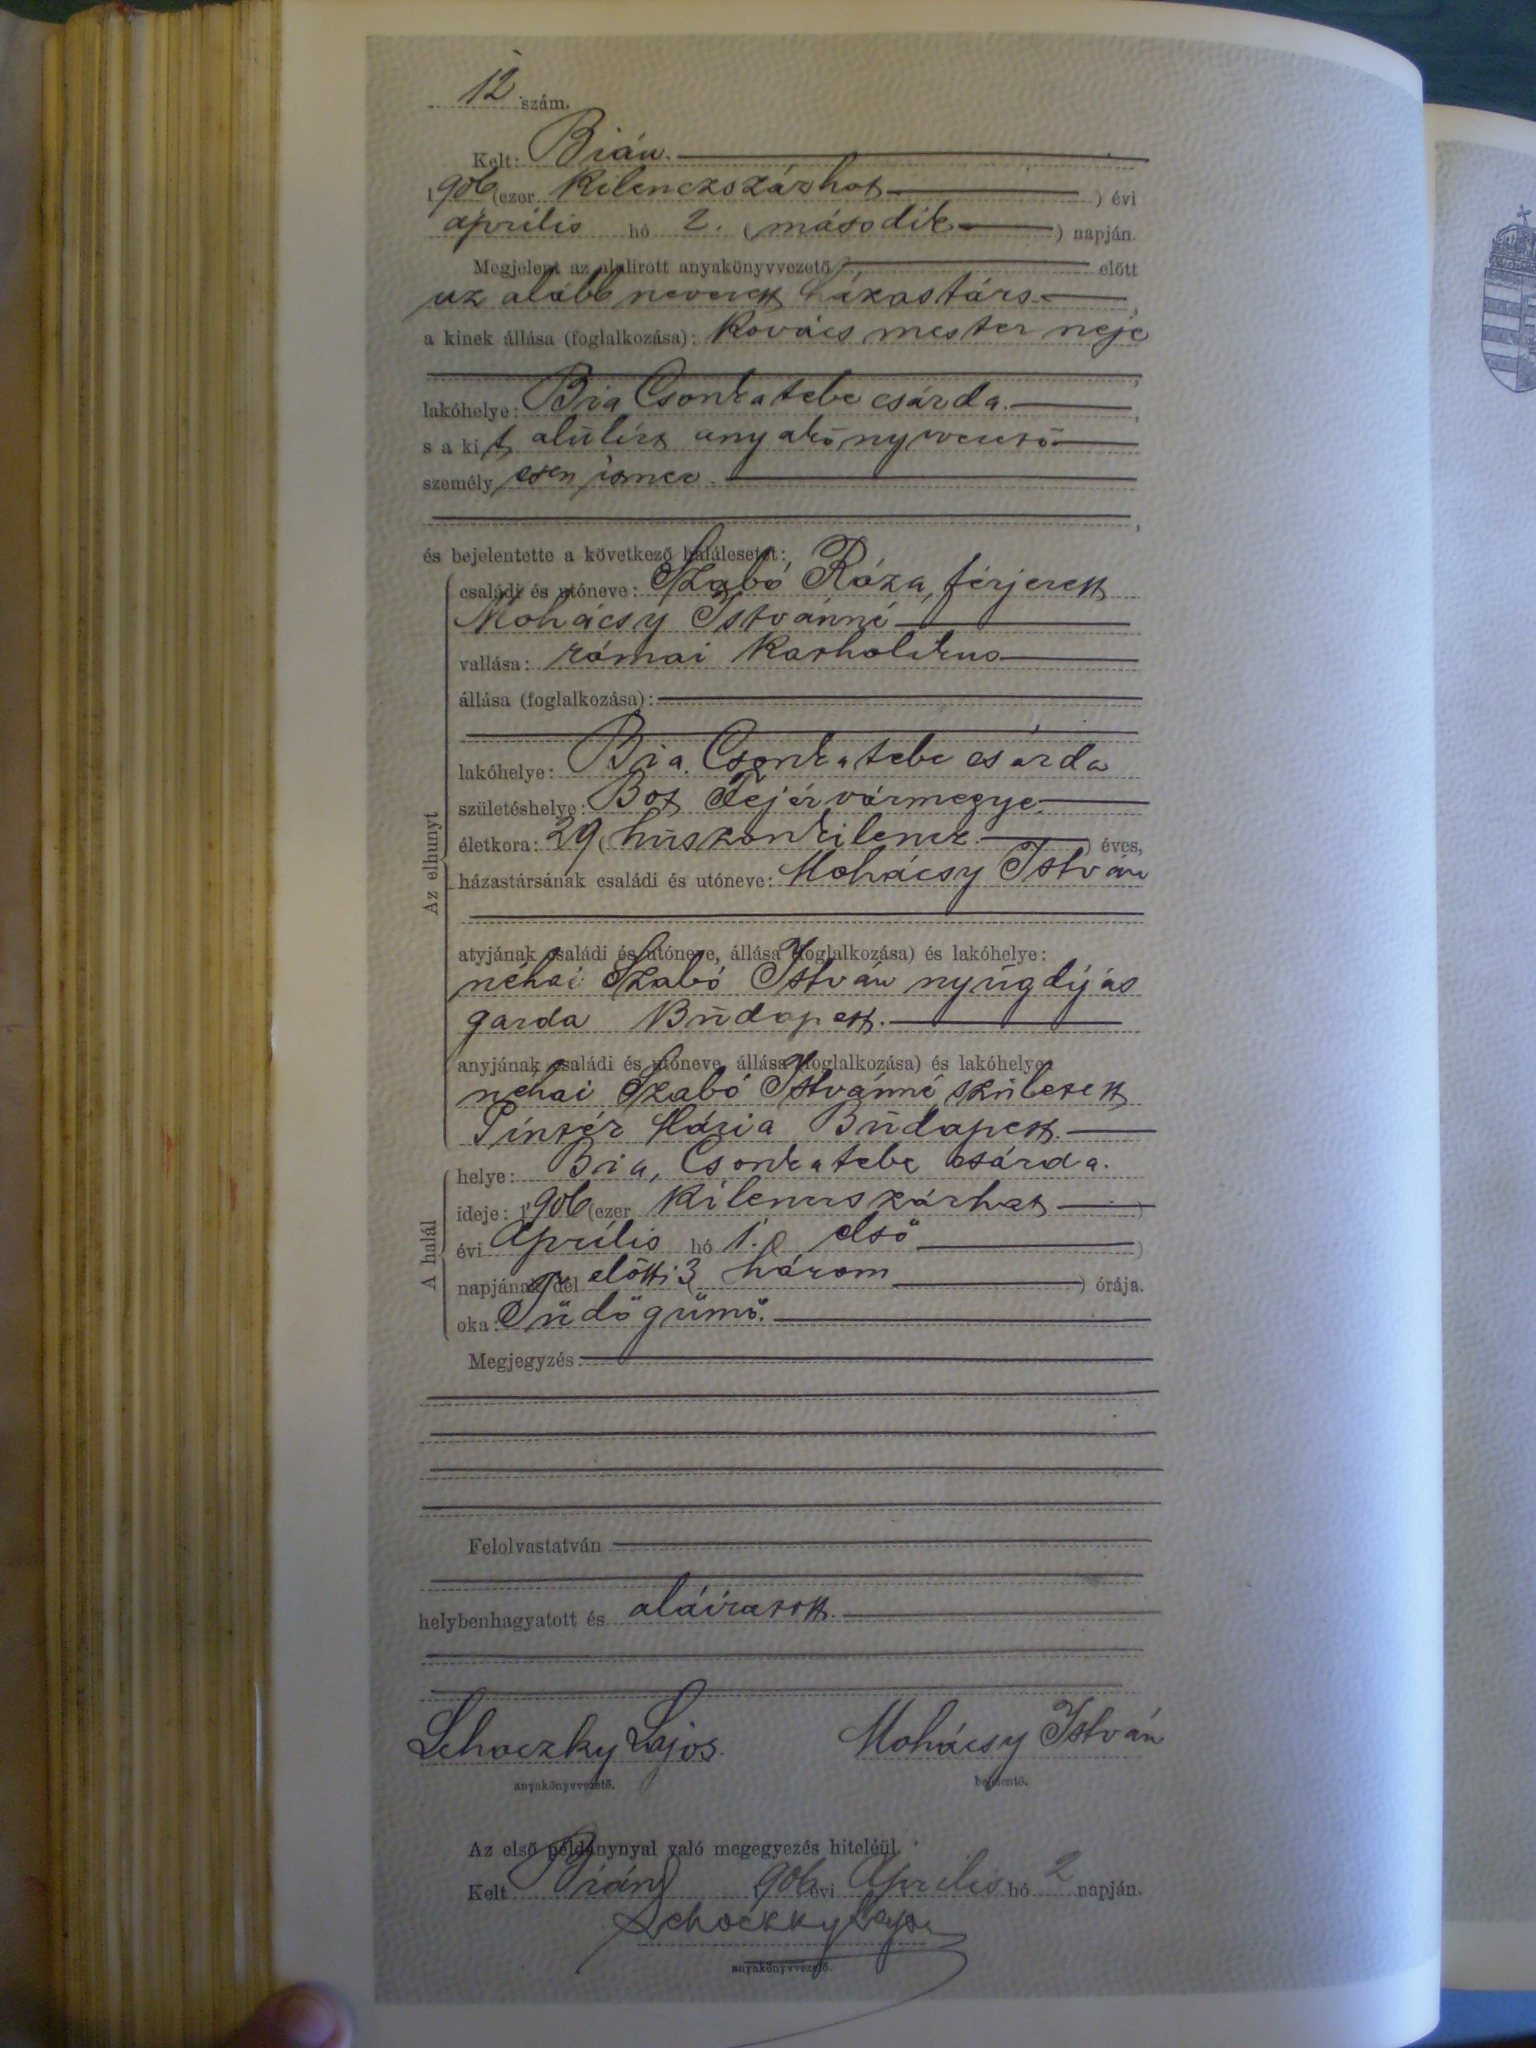 12 szám.
Kelt: Bián.
1906 (ezer kilenczszázhat ) évi
április hó 2. (második ) napján.
Megjelent az alulirott anyakönyvvezető előtt
az alább nevezett házastárs ,
a kinek állása (foglalkozása): kovács mester neje
,
lakóhelye: Bia Csonkatebe csárda. ,
s a kit alúlirt anyakönyvvezető
személyesen ismer.
,
és bejelentette a következő halálesetet:
Az elhunyt
családi és utóneve: Szabó Róza, férjezett
Mohácsy Istvánné
vallása: római katholikus
állása (foglalkozása):
lakóhelye: Bia, Csonkatebe csárda
születéshelye: Bot Fejérvármegye
életkora: 29 (húszonkilencz ) éves,
házastársának családi és utóneve: Mohácsy István
atyjának családi és utóneve, állása (foglalkozása) és lakóhelye:
néhai Szabó István nyúgdíjás
garda Búdapest.
anyjának családi és utóneve, állása (foglalkozása) és lakóhelye:
néhai Szabó Istvánné, született
Pintér Mária Búdapest.
A halál
helye: Bia, Csonkatebe csárda.
ideje: 1906 (ezer kilenczszázhat )
évi április hó 1. ( első )
napjának dél előtti 3 ( három ) órája.
oka: Tüdőgümő.
Megjegyzés:
Felolvastatván
helybenhagyatott és aláiratott.
Schoczky Lajos. Mohácsy István
anyakönyvvezető. bejelentő.
Az első példánynyal való megegyezés hiteléül.
Kelt Bián, 1906 évi április hó 2 napján.
Schoczky Lajos
anyakönyvvezető.